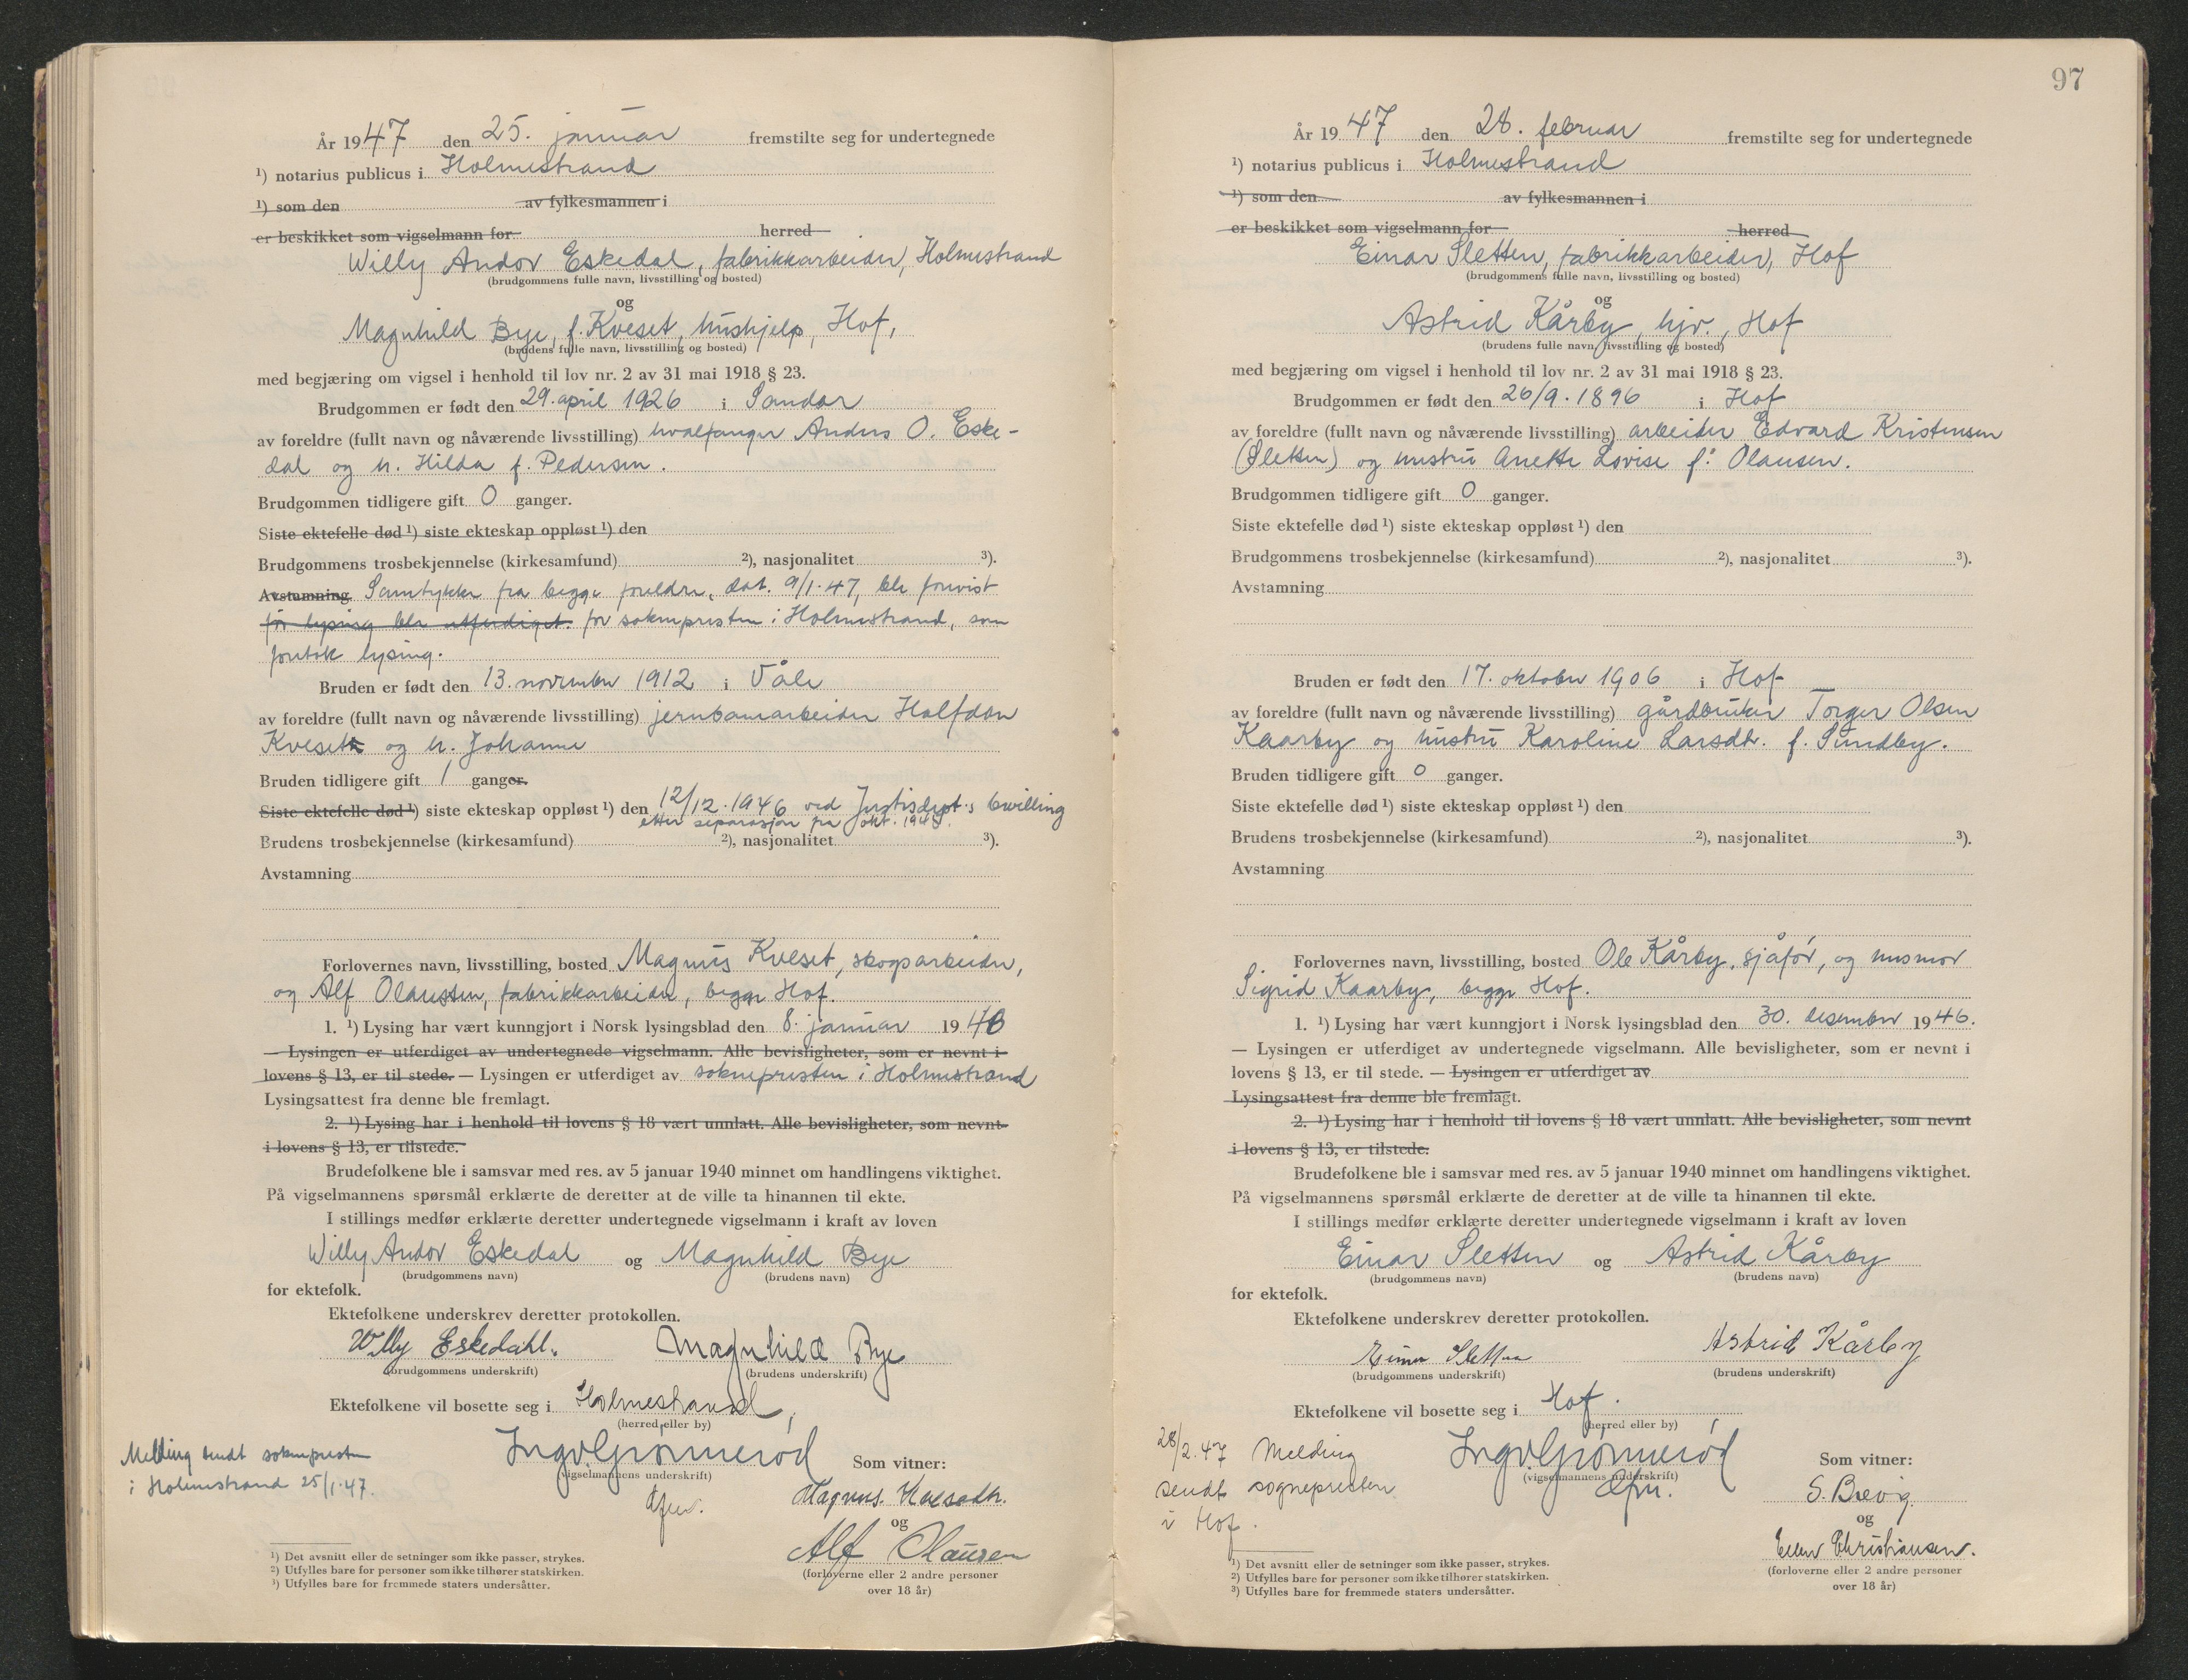 År 1947 den 25. januar fremstilte seg for undertegnede
¹) notarius publicus i Holmestrand
¹) som den av fylkesmannen i
er beskikket som vigselmann for herred
Willy Andor Eskedal, fabrikkarbeider, Holmestrand
(brudgommens fulle navn, livsstilling og bosted)
og
Magnhild Bye, f. Kveset, hushjelp, Hof,
(brudens fulle navn, livsstilling og bosted)
med begjæring om vigsel i henhold til lov nr. 2 av 31 mai 1918 § 23.
Brudgommen er født den 29. april 1926 i Sandar
av foreldre (fullt navn og nåværende livsstilling) hvalfanger Anders O. Eske-
dal og h. Hilda f. Pedersen.
Brudgommen tidligere gift 0 ganger.
Siste ektefelle død ¹) siste ekteskap oppløst ¹) den
Brudgommens trosbekjennelse (kirkesamfund) ²), nasjonalitet ³).
Avstamning Samtykke fra begge foreldre, dat. 9/1-47, ble forevist
før lysing ble utferdiget. for soknepresten i Holmestrand, som
foretok lysing.
Bruden er født den 13. november 1912 i Våle
av foreldre (fullt navn og nåværende livsstilling) jernbanearbeider Halfdan
Kveset og h. Johanne
Bruden tidligere gift 1 ganger.
Siste ektefelle død ¹) siste ekteskap oppløst ¹) den 12/12.1946 ved Justisdept.s bevilling
etter separasjon fra okt. 1945.
Brudens trosbekjennelse (kirkesamfund) ²), nasjonalitet ³).
Avstamning
Forlovernes navn, livsstilling, bosted Magnus Kveset, skogsarbeider,
og Alf Olaussen, fabrikkarbeider, begge Hof.
1. ¹) Lysing har vært kunngjort i Norsk lysingsblad den 8. januar 19
— Lysingen er utferdiget av undertegnede vigselmann. Alle bevisligheter, som er nevnt i
lovens § 13, er til stede. — Lysingen er utferdiget av soknepresten i Holmestrand
Lysingsattest fra denne ble fremlagt.
2. ¹) Lysing har i henhold til lovens § 18 vært unnlatt. Alle bevisligheter, som nevnt
i lovens § 13, er tilstede.
Brudefolkene ble i samsvar med res. av 5 januar 1940 minnet om handlingens viktighet.
På vigselmannens spørsmål erklærte de deretter at de ville ta hinannen til ekte.
I stillings medfør erklærte deretter undertegnede vigselmann i kraft av loven
Willy Andor Eskedal og Magnhild Bye
(brudgommens navn) (brudens navn)
for ektefolk.
Ektefolkene underskrev deretter protokollen.
Willy Eskedahl. Magnhild Bye
(brudgommens underskrift) (brudens underskrift)
Ektefolkene vil bosette seg i Holmestrand,
(herred eller by)
Melding sendt soknepresten
i Holmestrand 25/1-47.
Ingv. Grønnerød
(vigselmannens underskrift)
Som vitner:
Magnus
og
Alf Olausen
(forloverne eller 2 andre personer
over 18 år)
¹) Det avsnitt eller de setninger som ikke passer, strykes.
²) Utfylles bare for personer som ikke tilhører statskirken.
³) Utfylles bare for fremmede staters undersåtter.
97
År 1947 den 28. februar fremstilte seg for undertegnede
¹) notarius publicus i Holmestrand
¹) som den av fylkesmannen i
er beskikket som vigselmann for herred
Einar Sletten, fabrikkarbeider, Hof
(brudgommens fulle navn, livsstilling og bosted)
og
Astrid Kårby, hjv., Hof
(brudens fulle navn, livsstilling og bosted)
med begjæring om vigsel i henhold til lov nr. 2 av 31 mai 1918 § 23.
Brudgommen er født den 26/9.1896 i Hof
av foreldre (fullt navn og nåværende livsstilling) arbeider Edvard Kristensen
(Sletten) og hustru Anette Lovise f. Olausen.
Brudgommen tidligere gift 0 ganger.
Siste ektefelle død ¹) siste ekteskap oppløst ¹) den
Brudgommens trosbekjennelse (kirkesamfund) ²), nasjonalitet ³).
Avstamning
Bruden er født den 17. oktober 1906 i Hof
av foreldre (fullt navn og nåværende livsstilling) gårdbruker Torger Olsen
Kaarby og hustru Karoline Larsdt. f. Sundby.
Bruden tidligere gift 0 ganger.
Siste ektefelle død ¹) siste ekteskap oppløst ¹) den
Brudens trosbekjennelse (kirkesamfund) ²), nasjonalitet ³).
Avstamning
Forlovernes navn, livsstilling, bosted Ole Kårby, sjåfør, og husmor
Sigrid Kaarby, begge Hof.
1. ¹) Lysing har vært kunngjort i Norsk lysingsblad den 30. desember 1946.
— Lysingen er utferdiget av undertegnede vigselmann. Alle bevisligheter, som er nevnt i
lovens § 13, er til stede. — Lysingen er utferdiget av
Lysingsattest fra denne ble fremlagt.
2. ¹) Lysing har i henhold til lovens § 18 vært unnlatt. Alle bevisligheter, som nevnt
i lovens § 13, er tilstede.
Brudefolkene ble i samsvar med res. av 5 januar 1940 minnet om handlingens viktighet.
På vigselmannens spørsmål erklærte de deretter at de ville ta hinannen til ekte.
I stillings medfør erklærte deretter undertegnede vigselmann i kraft av loven
Einar Sletten og Astrid Kårby
(brudgommens navn) (brudens navn)
for ektefolk.
Ektefolkene underskrev deretter protokollen.
Einar Sletten Astrid Kårby
(brudgommens underskrift) (brudens underskrift)
Ektefolkene vil bosette seg i Hof.
(herred eller by)
28/2.47 Melding
sendt sognepresten
i Hof.
Ingv. Grønnerød
(vigselmannens underskrift)
Som vitner:
S. Brevig
og
Ellen Christiansen.
(forloverne eller 2 andre personer
over 18 år)
¹) Det avsnitt eller de setninger som ikke passer, strykes.
²) Utfylles bare for personer som ikke tilhører statskirken.
³) Utfylles bare for fremmede staters undersåtter.